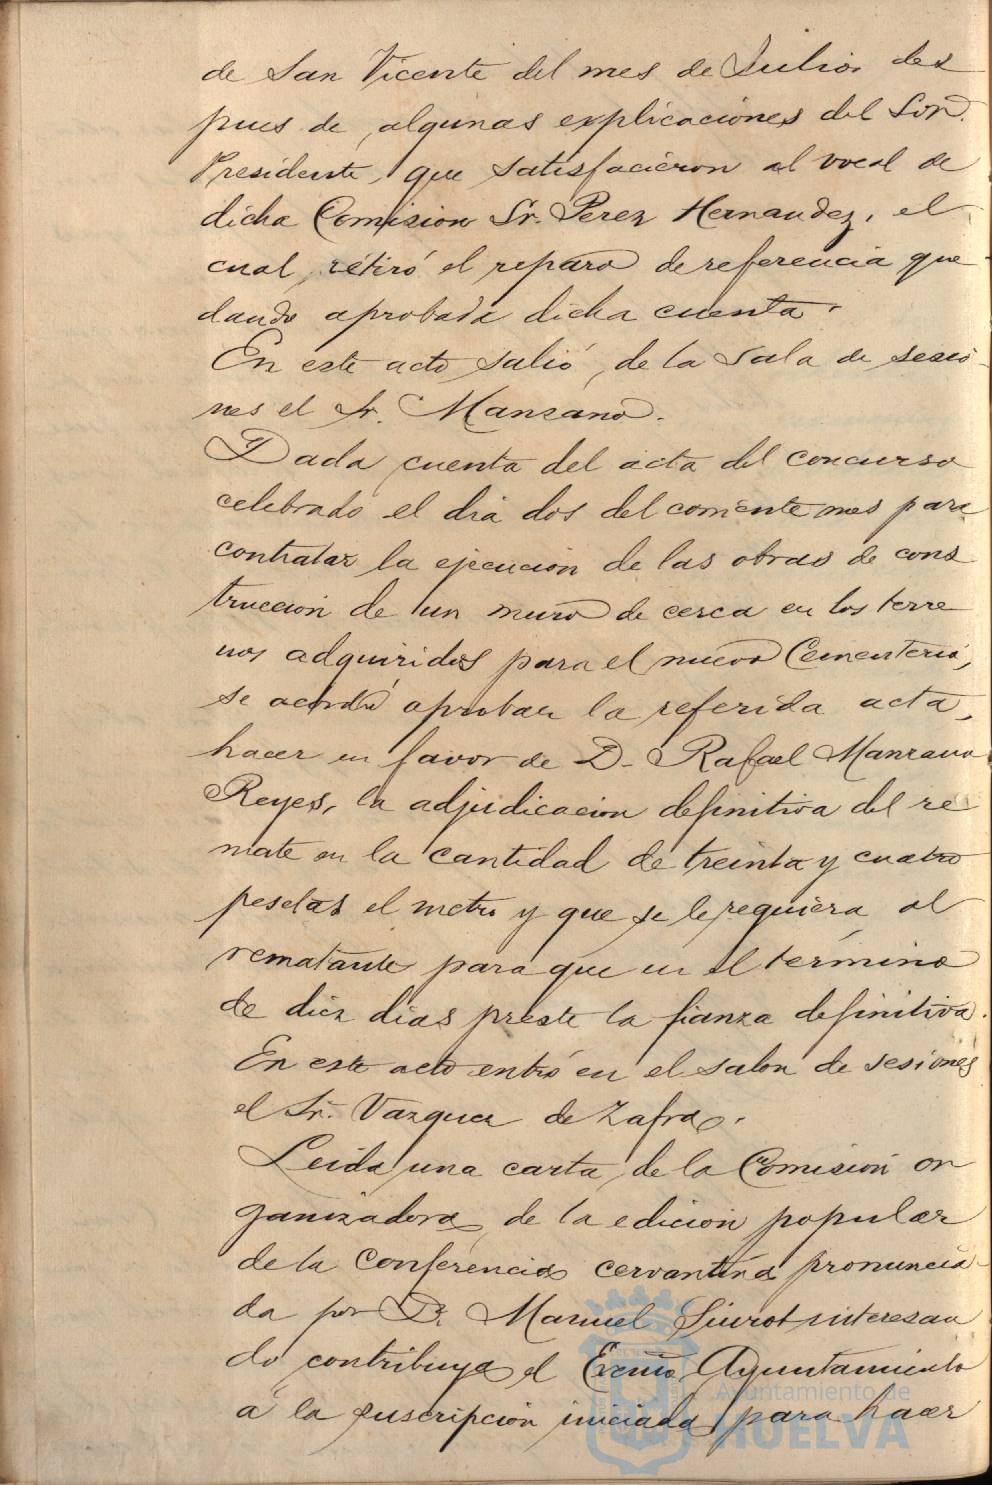 de San Vicente del mes de Julio, des
pues de algunas explicaciones del Sor.
Presidente, que satisfacieron al vocal de
dicha Comision Sr. Perez Hernandez, el
cual, retiró el reparo de referencia que
dando aprobada dicha cuenta.
En este acto salió, de la Sala de sesio-
nes el Sr. Manzano.
Dada cuenta del acta del concurso
celebrado el dia dos del corriente mes para
contratar la ejecucion de las obras de cons
truccion de un muro de cerca en los terre
nos adquiridos para el nuevo Cementerio,
se acordó aprobar la referida acta,
hacer en favor de D. Rafael Manzano
Reyes, la adjudicacion definitiva del re
mate en la cantidad de treinta y cuatro
pesetas el metro y que se le requiera al
rematante para que en el término
de diez dias preste la fianza definitiva.
En este acto entró en el salon de sesiones
el Sr. Vazquez de Zafra.
Leida una carta de la Comision or
ganizadora de la edicion popular
de la Conferencia cervantina pronuncia
da por D. Manuel Siurot interesan
do contribuya el Excmo. Ayuntamiento
á la suscripcion iniciada para hacer
Ayuntamiento de
HUELVA